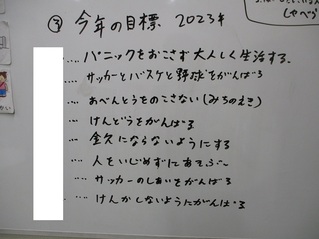 しゃべる
③ 今年の目標 2023年
.... パニックをおこさず大人しく生活する.
.... サッカーとバスケと野球をがんばる
.... おべんとうをのこさない(みちのえき)
.... けんどうをがんばる
.... 金欠にならないようにする
.... 人をいじめずにあそぶ〜
.... サッカーのしあいをがんばる
.... けんかしないようにがんばる